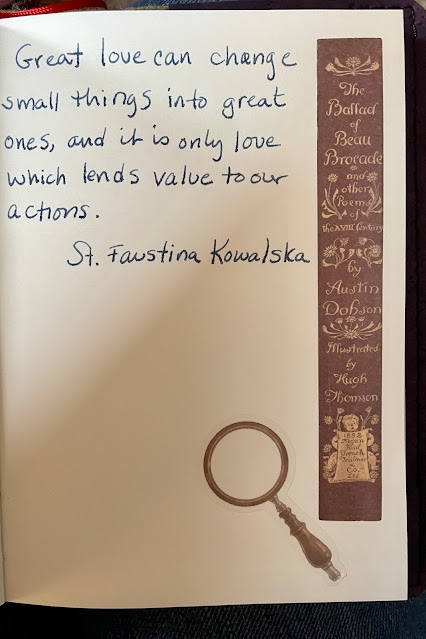 Great love can change
small things into great
ones, and it is only love
which lends value to our
actions.
St. Faustina Kowalska
The
Ballad
of
Beau
Brocade
and
other
Poems
of
the XVIII Century
by
Austin
Dobson
Illustrated
by
Hugh
Thomson
1892
Kegan
Paul
Trench
Trübner
& Co.